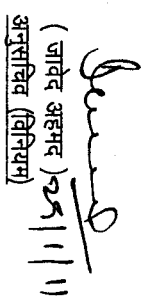 ( जावेद अहमद ) 25/11/11
अनुसचिव (विनियम)